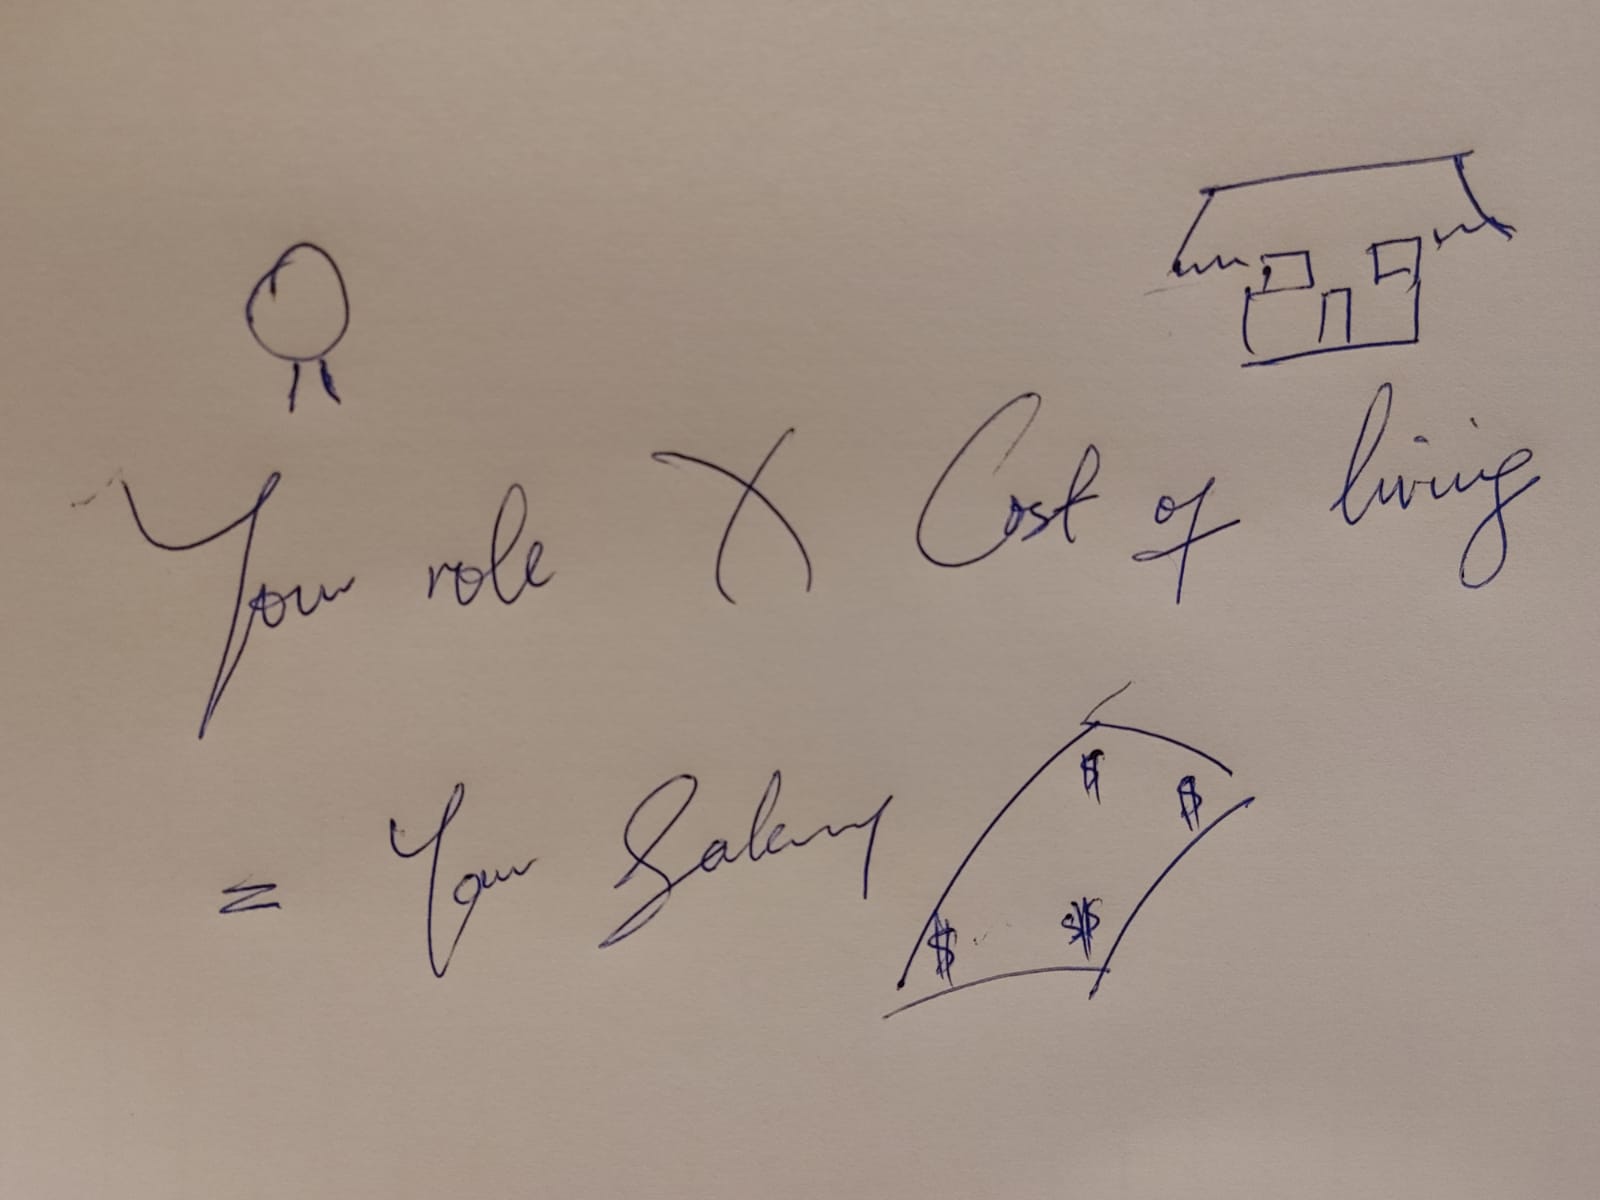 Your role X Cost of living
= Your Salary
$ $
$ $